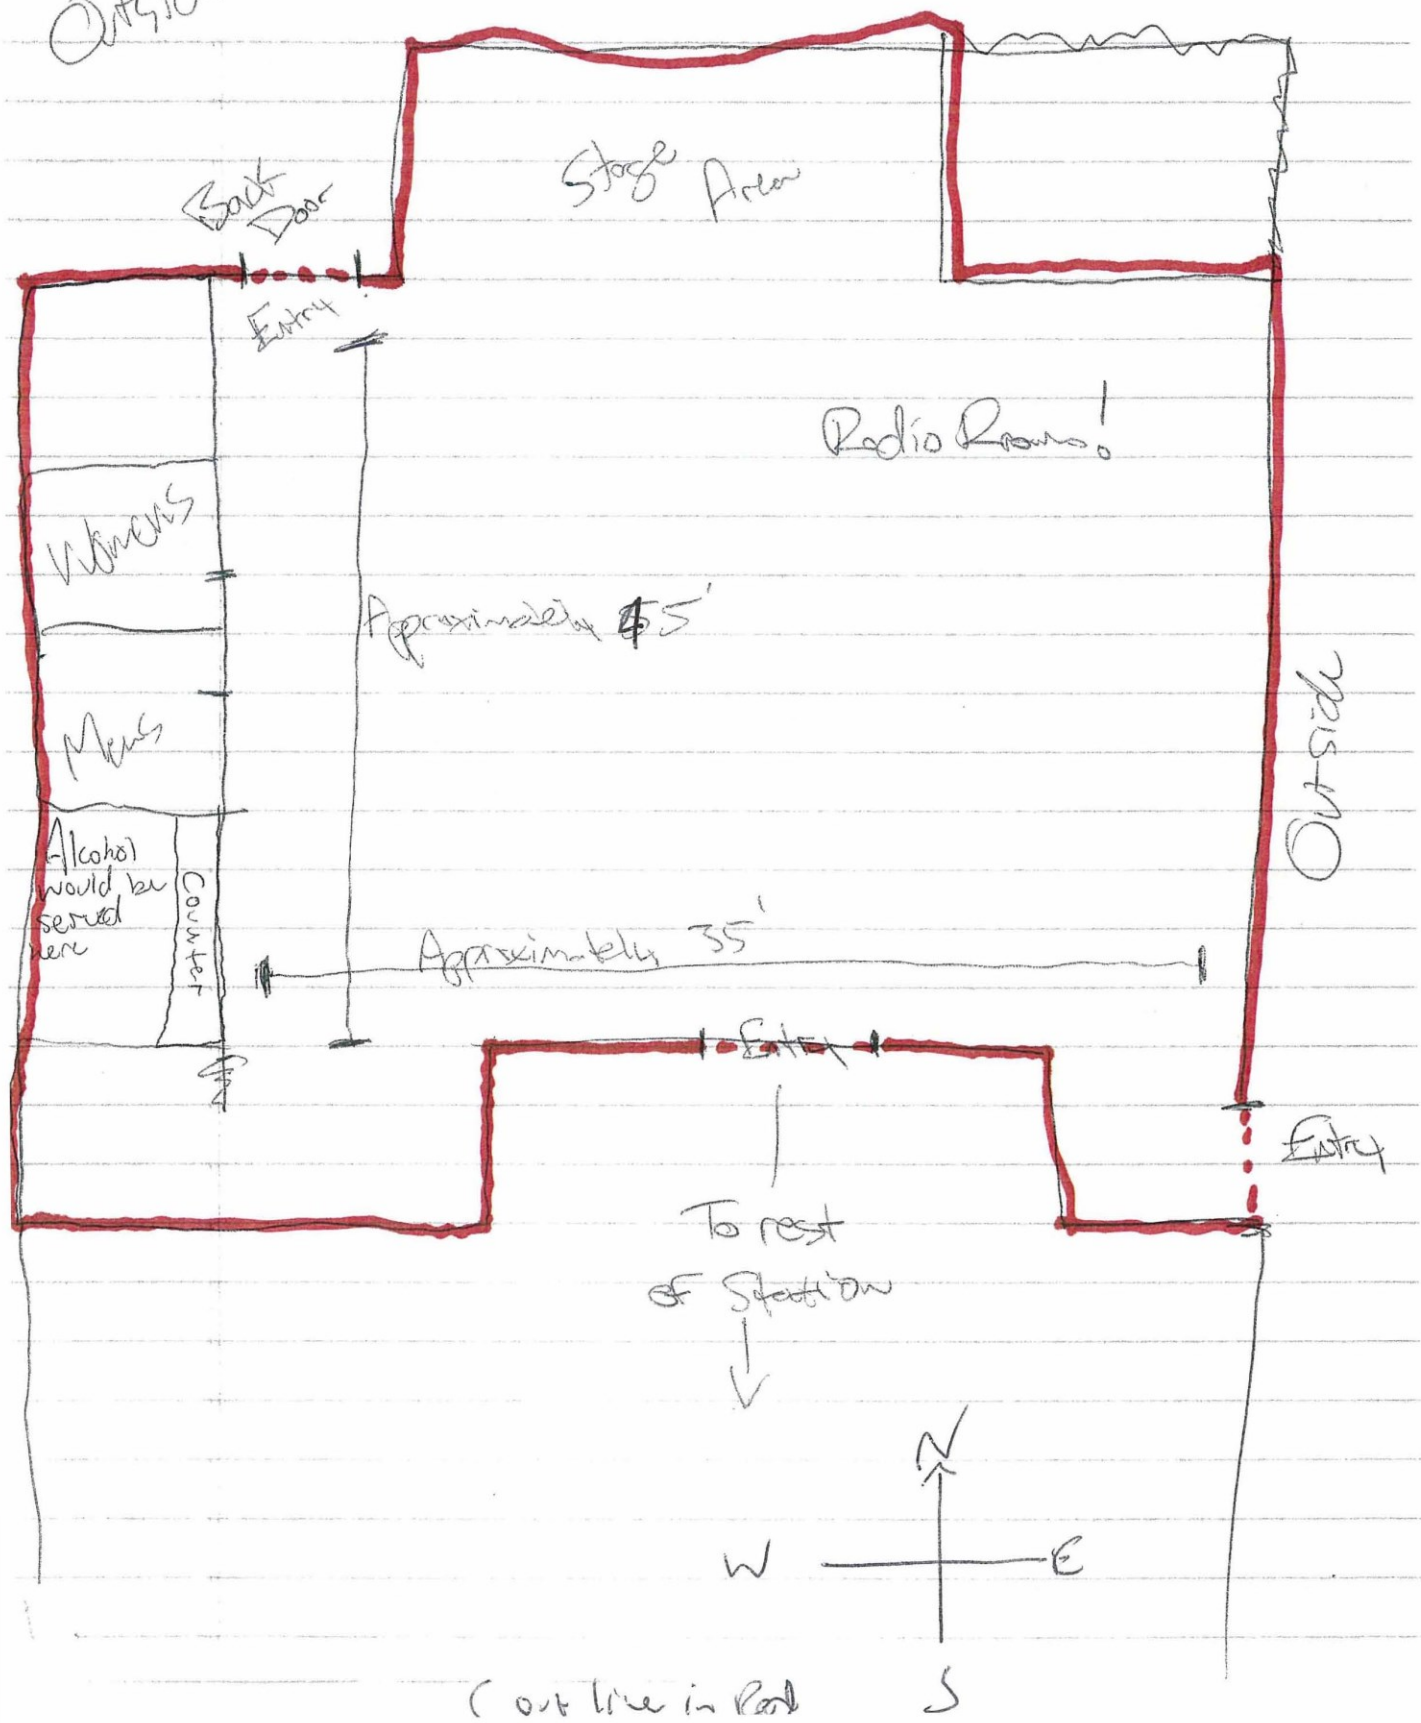 Back
Door
Stage Area
Entry
Radio Room!
Womens
Approximately 45'
Mens
Outside
Alcohol
would be
served
here
Counter
Approximately 35'
Entry
Entry
To rest
of Station
N
W
E
S
(outline in Red